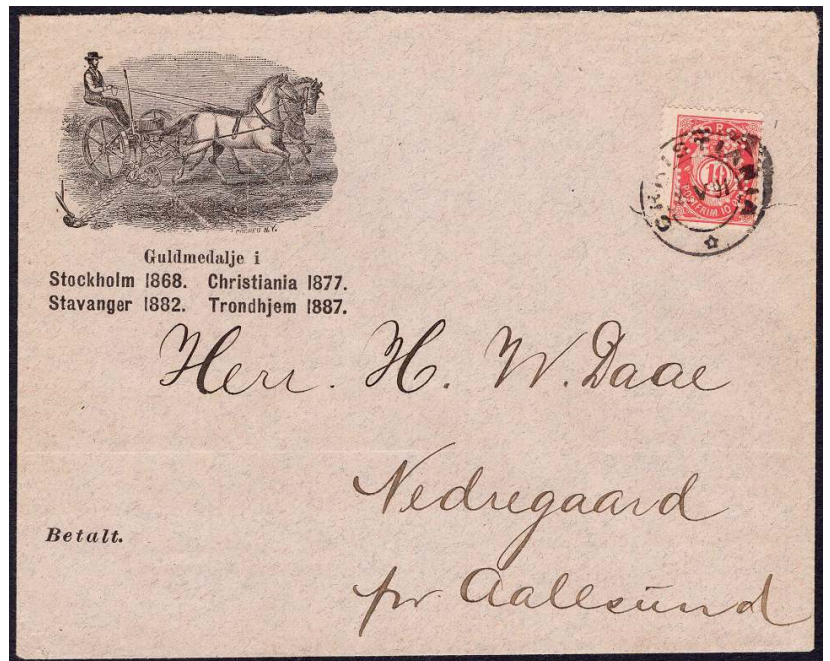 Guldmedalje i
Stockholm 1868. Christiania 1877.
Stavanger 1882. Trondhjem 1887.
CHRISTIANIA
10
POSTFRIM 10
Herr. H. W. Daae
Nedregaard
Betalt.
pr Aallesund